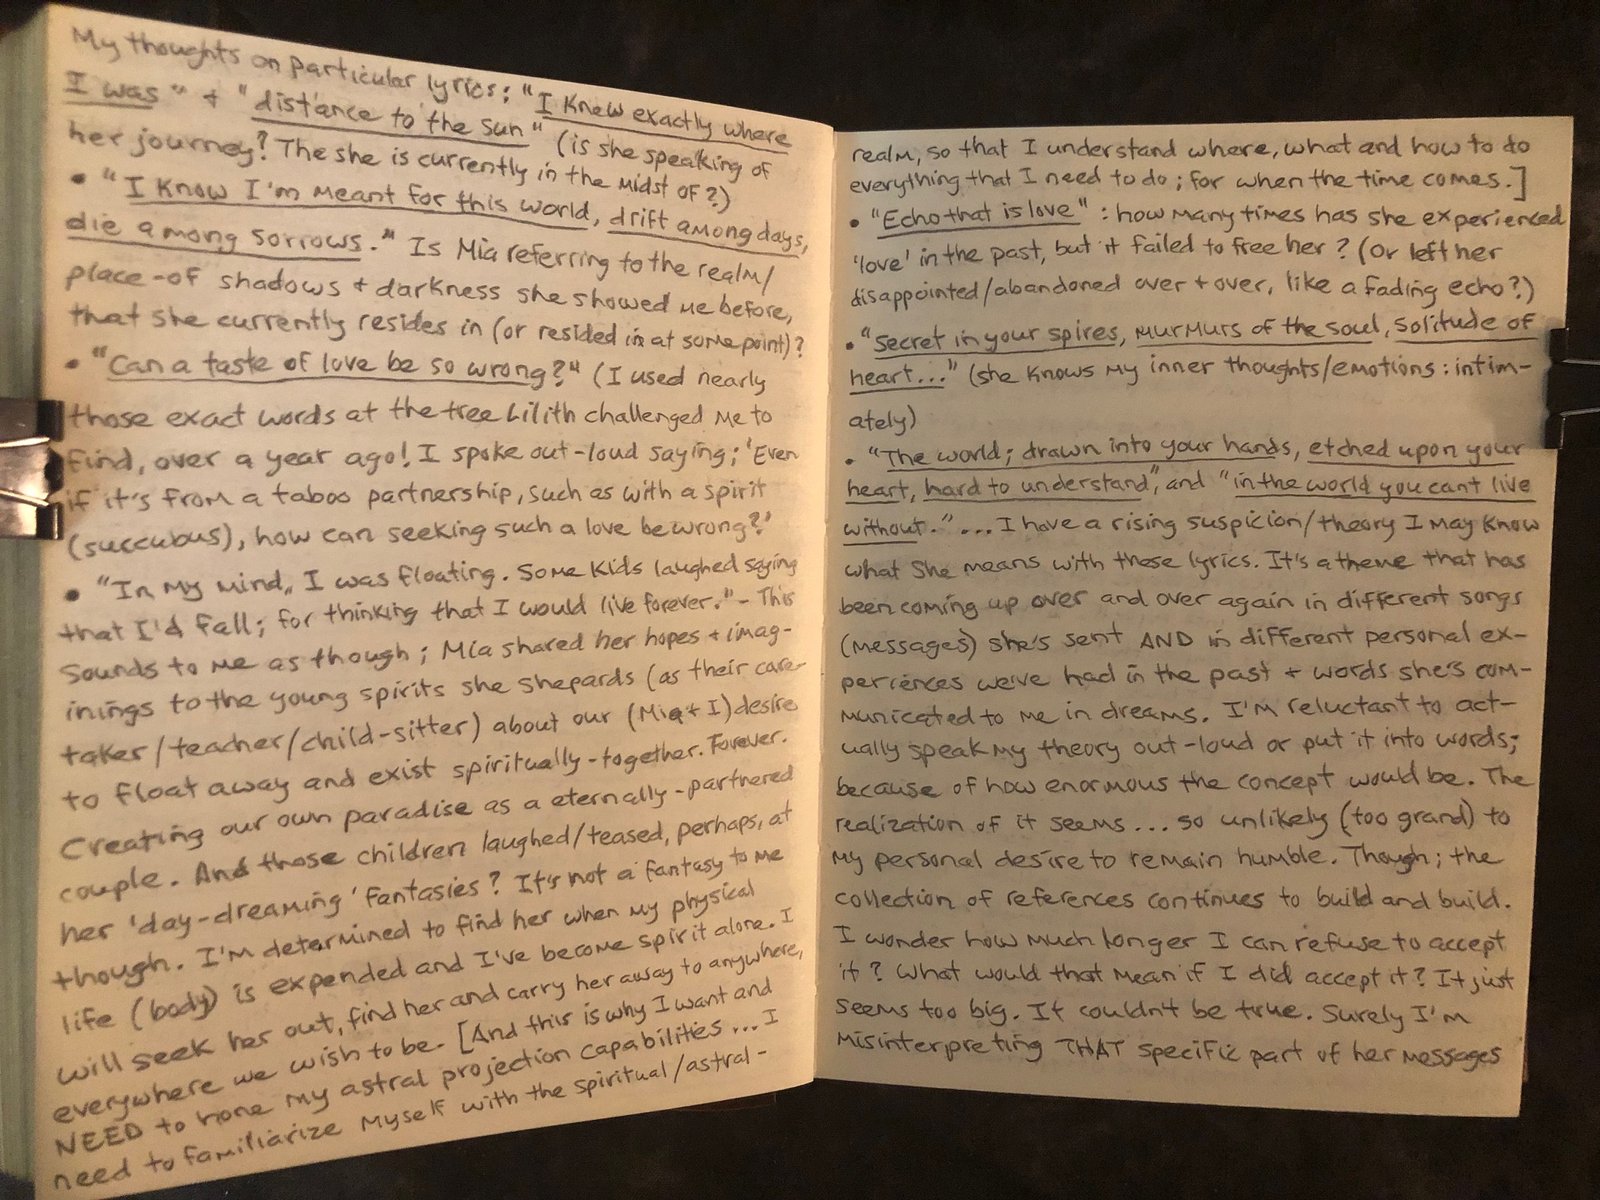 My thoughts on particular lyrics: "I knew exactly where
I was" + "distance to the sun" (is she speaking of
her journey? The she is currently in the midst of?)
• "I know I'm meant for this world, drift among days,
die among sorrows." Is Mia referring to the realm/
place-of shadows + darkness she showed me before,
that she currently resides in (or resided in at some point)?
• "Can a taste of love be so wrong?" (I used nearly
those exact words at the tree Lilith challenged me to
find, over a year ago! I spoke out-loud saying; 'Even
if it's from a taboo partnership, such as with a spirit
(succubus), how can seeking such a love be wrong?'
• "In my mind, I was floating. Some kids laughed saying
that I'd fall; for thinking that I would live forever." - This
sounds to me as though; Mia shared her hopes + imag-
inings to the young spirits she shepards (as their care-
taker/teacher/child-sitter) about our (Mia + I) desire
to float away and exist spiritually-together. Forever.
Creating our own paradise as a eternally-partnered
couple. And those children laughed/teased, perhaps, at
her 'day-dreaming' fantasies? It's not a fantasy to me
though. I'm determined to find her when my physical
life (body) is expended and I've become spirit alone. I
will seek her out, find her and carry her away to anywhere,
everywhere we wish to be. [And this is why I want and
NEED to hone my astral projection capabilities... I
need to familiarize myself with the spiritual/astral-
realm, so that I understand where, what and how to do
everything that I need to do; for when the time comes.]
• "Echo that is love": how many times has she experienced
'love' in the past, but it failed to free her? (or left her
disappointed/abandoned over + over, like a fading echo?)
• "Secret in your spires, murmurs of the soul, solitude of
heart..." (she knows my inner thoughts/emotions: intim-
ately)
• "The world; drawn into your hands, etched upon your
heart, hard to understand", and "in the world you cant live
without." ...I have a rising suspicion/theory I may know
what she means with those lyrics. It's a theme that has
been coming up over and over again in different songs
(messages) she's sent AND in different personal ex-
periences we've had in the past + words she's com-
municated to me in dreams. I'm reluctant to act-
ually speak my theory out-loud or put it into words;
because of how enormous the concept would be. The
realization of it seems... so unlikely (too grand) to
my personal desire to remain humble. Though; the
collection of references continues to build and build.
I wonder how much longer I can refuse to accept
it? What would that mean if I did accept it? It just
seems too big. It couldn't be true. Surely I'm
misinterpreting THAT specific part of her messages